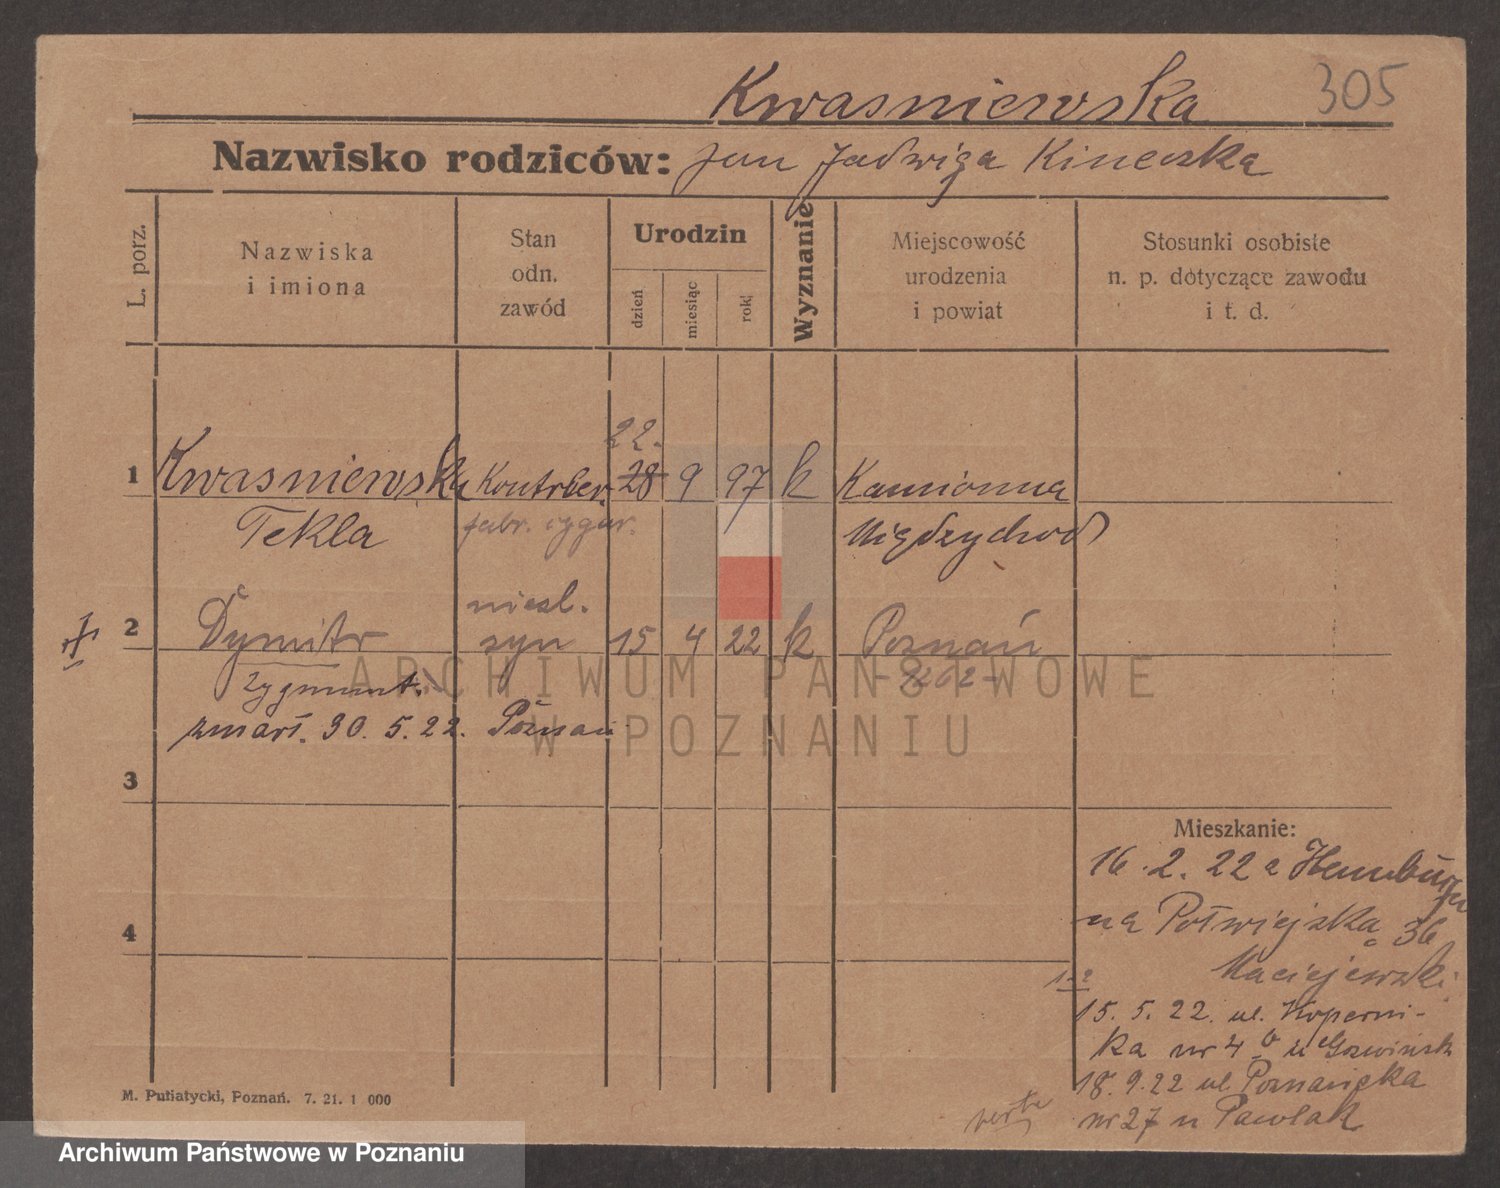 Kwasniewska
305
Nazwisko rodziców: Jan Jadwiga Kinecka
L. porz.
Nazwiska i imiona
Stan odn. zawód
Urodzin
dzień
miesiąc
rok
Wyznanie
Miejscowość urodzenia i powiat
Stosunki osobiste n. p. dotyczące zawodu i t. d.
22.
1 Kwasniewska 28 9 97 k Kamionna
Tekla fabr. cygar. Międzychod
niesl.
2 Dymitr syn 15 4 22 k Poznań
Zygmunt.
zmarł. 30. 5. 22. Poznań
ARCHIWUM PAŃSTWOWE
W POZNANIU
3
Mieszkanie:
16. 2. 22 z Hamburga
4
na Półwiejska 36
Maciejewski
15. 5. 22. ul. Koperni-
ka nr 4
18. 9. 22 ul Poznańska
nr 27 u Pawlak
M. Putiatycki, Poznań. 7. 21. 1 000
Archiwum Państwowe w Poznaniu